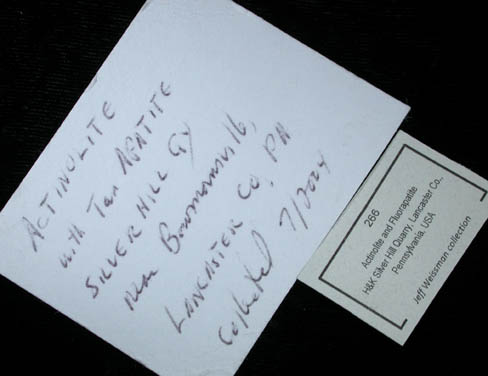 ACTINOLITE
with Tan APATITE
SILVER HILL QY
near Bowmansville,
LANCASTER Co, PA
Collected 7/2004
266
Actinolite and Fluorapatite
H&K Silver Hill Quarry, Lancaster Co.,
Pennsylvania, USA
Jeff Weissman collection